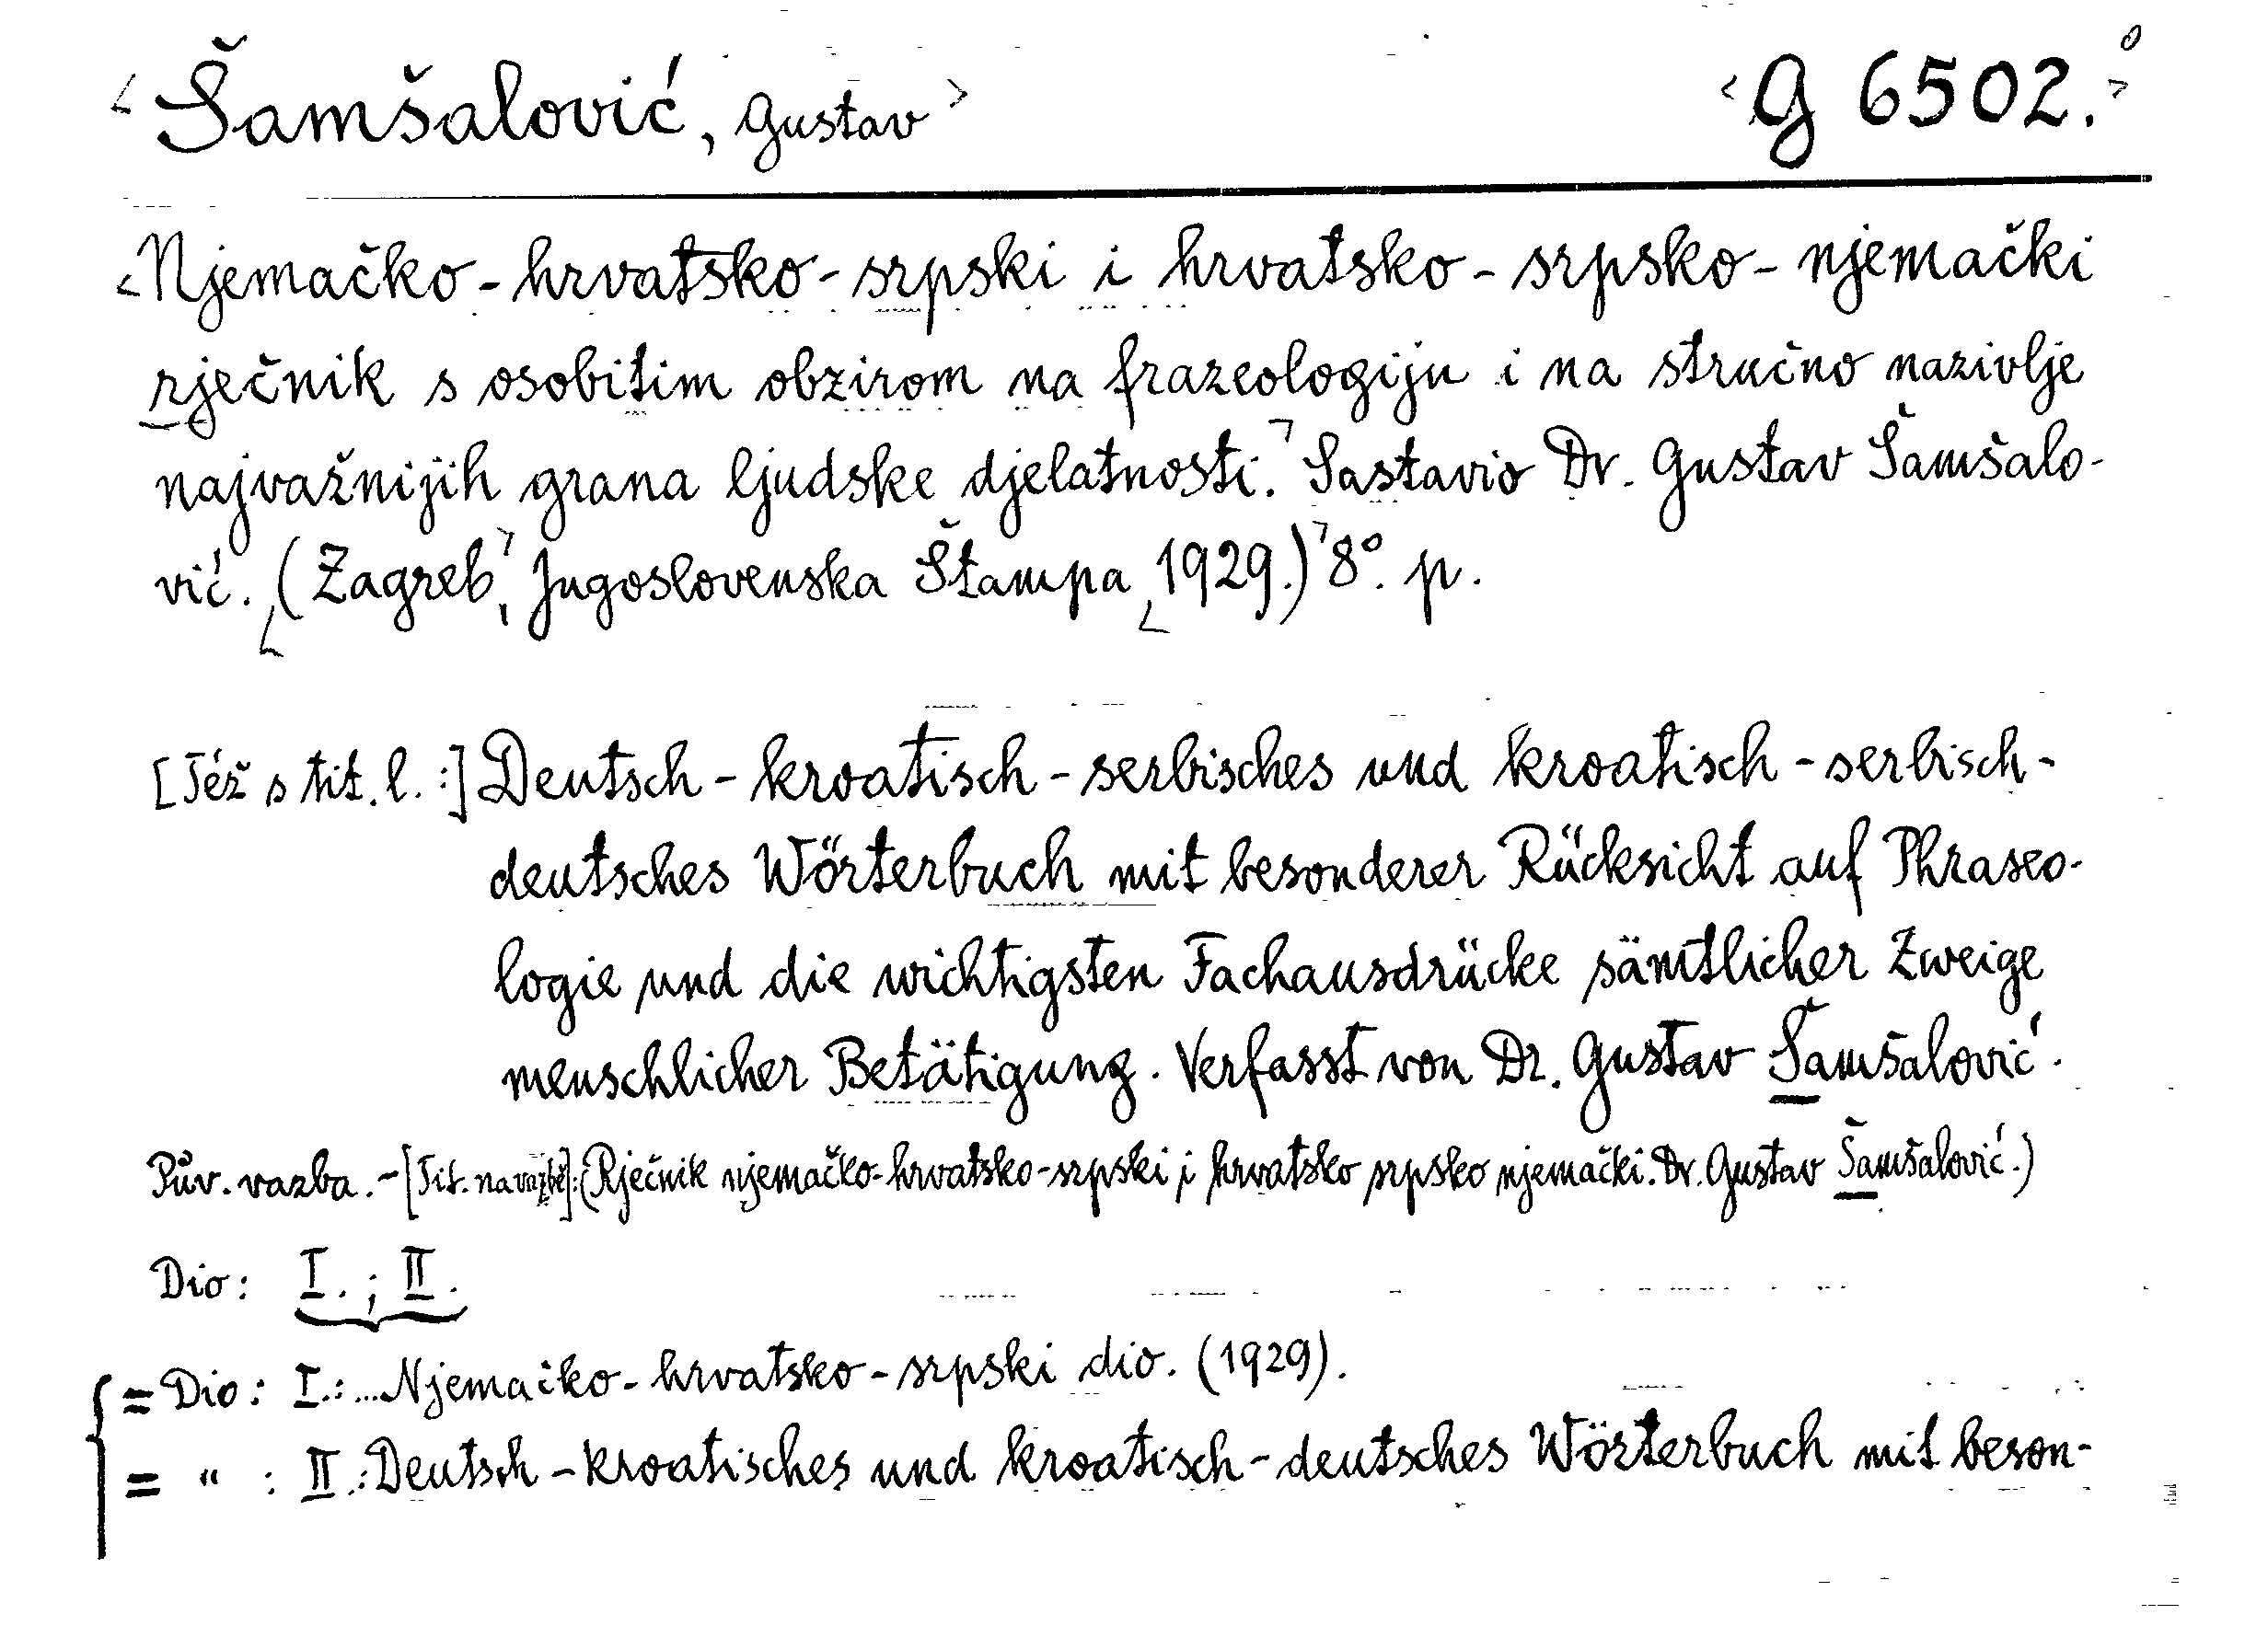 <Šamšalović, Gustav> <G 6502.>⁰
<Njemačko-hrvatsko-srpski i hrvatsko-srpsko-njemački
rječnik s osobitim obzirom na frazeologiju i na stručno nazivlje
najvažnijih grana ljudske djelatnosti.> Sastavio Dr. Gustav Šamšalo-
vić. <(Zagreb>, Jugoslovenska Štampa <1929.)> 8°. p.
[Též s tit. l.:] Deutsch-kroatisch-serbisches und kroatisch-serbisch-
deutsches Wörterbuch mit besonderer Rücksicht auf Phraseo-
logie und die wichtigsten Fachausdrücke sämtlicher Zweige
menschlicher Betätigung. Verfasst von Dr. Gustav Šamšalović.
Pův. vazba. - [Tit. na vazbě]: (Rječnik njemačko-hrvatsko-srpski i hrvatsko srpsko njemački. Dr. Gustav Šamšalović.)
Dio: I. ; II.
= Dio: I.: ...Njemačko-hrvatsko-srpski dio. (1929).
= " : II.: Deutsch-kroatisches und kroatisch-deutsches Wörterbuch mit beson-